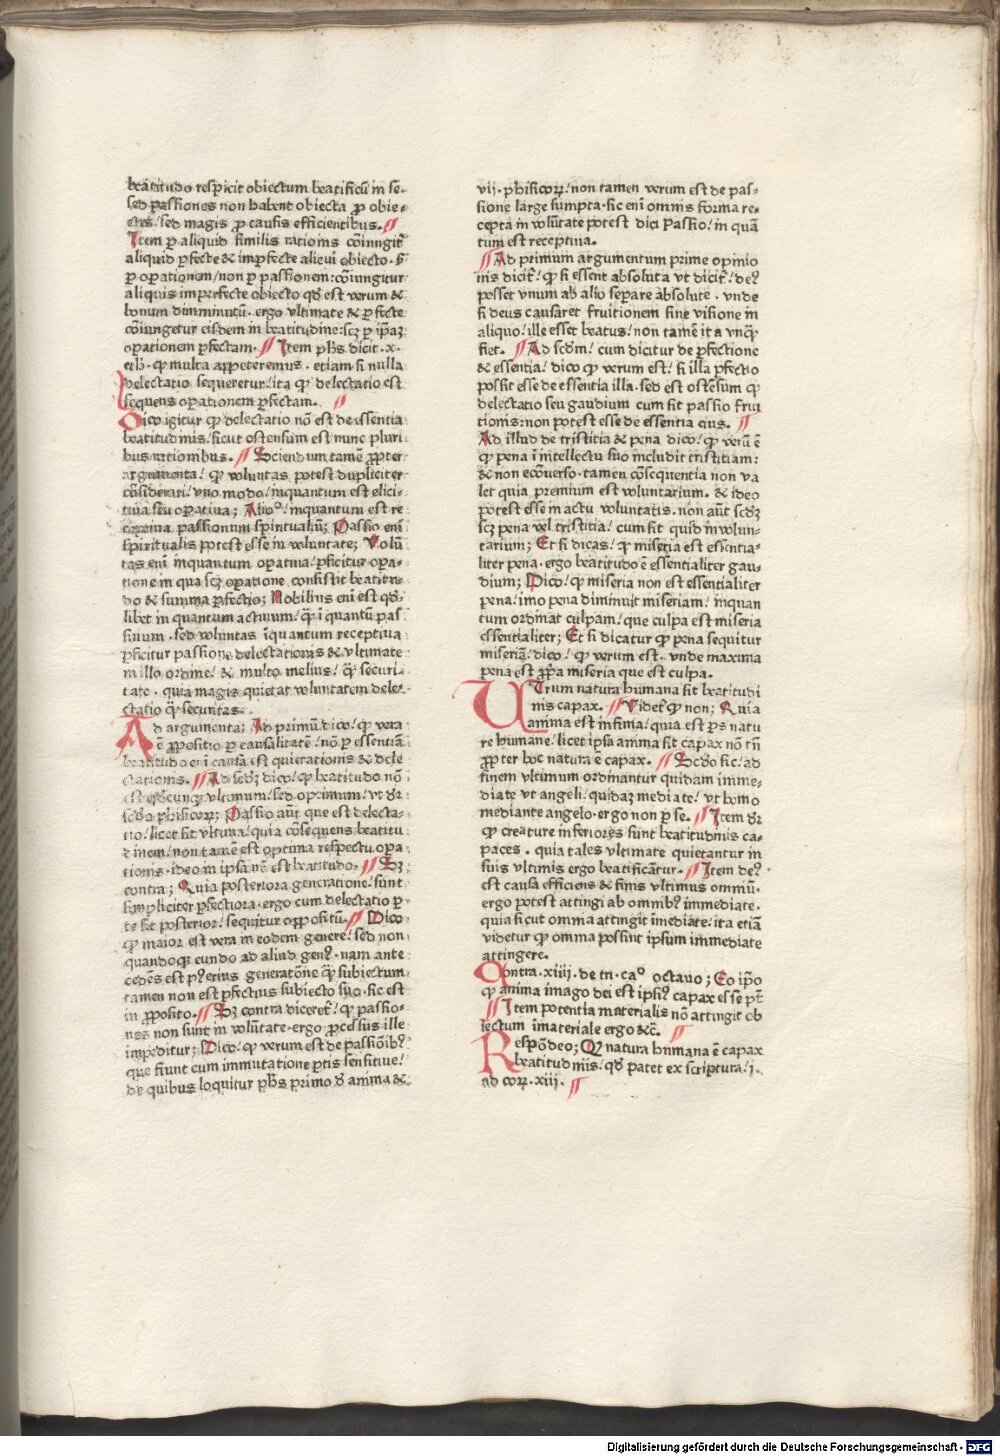 beatitudo respicit obiectum beatificū in se.
sed passiones non habent obiecta ꝓ obie-
ctis/ sed magis ꝓ causis efficientibus.
Item ꝑ aliquid similis rationis cōiungit᷑
aliquid ꝑfecte & imꝑfecte alicui obiecto. s᷒
ꝑ oꝑationem/ non ꝑ passionem: cōiungitur
aliquis imperfecte obiecto qḋ est verum &
bonum diminutū. ergo vltimate & ꝑfecte
cōiungetur eisdem in beatitudine: scꝫ ꝑ ip̄aꝫ
oꝑationem ꝑfectam. Item ph̄s dicit .x.
eth̄. ꝙ multa appeteremus. etiam si nulla
delectatio sequeretur/ ita ꝙ delectatio est
sequens oꝑationem ꝑfectam.
Dico igitur ꝙ delectatio nō est de essentia
beatitudinis/ sicut ostensum est nunc pluri
bus rationibus. Sciendum tamē ꝓpter
argumenta/ ꝙ voluntas potest dupliciter
cōsiderari/ vno modo/ inquantum est elici-
tiua seu oꝑatiua; Alio°/ inquantum est re
ceptiua passionum spiritualiū; Passio enī
spiritualis potest esse in voluntate; Volū
tas enī inquantum oꝑatiua/ ꝑficitur oꝑa-
tione in qua scꝫ oꝑatione consistit beatitu-
do & summa ꝑfectio; Nobilius enī est qḋ-
libet in quantum actiuum/ ꝙ̄ ī quantū pas
siuum. sed voluntas īquantum receptiua
ꝑficitur passione delectationis & vltimate
in illo ordine/ & multo melius/ ꝙ̄ securi-
tate. quia magis quietat voluntatem dele-
ctatio ꝙ̄ securitas.
Ad argumenta; Ad primū dico/ ꝙ vera
ē ꝓpositio ꝑ causalitatē/ nō ꝑ essentiā
beatitudo enī causa est quietationis & dele
ctationis. Ad scḋꝫ dico/ ꝙ beatitudo nō
est qḋcunqꝫ vltimum/ sed optimum/ vt dr̄
scḋo phisicoꝝ; Passio aūt que est delecta-
tio/ licet sit vltima/ quia cōsequens beatitu
dinem/ non tamē est optima respectu oꝑa
tionis. ideo in ipsa nō est beatitudo. Sꝫ
contra; Quia posteriora generatione/ sunt
simpliciter ꝑfectiora. ergo cum delectatio ꝑ
te sit posterior/ sequitur oppositū. Dico
ꝙ maior est vera in eodem genere/ sed non
quandoqꝫ eundo ad aliud genꝰ. nam ante
cedēs est pꝰerius generatōne ꝙ̄ subiectum
tamen non est ꝑfectius subiecto suo. sic est
in ꝓposito. Sꝫ contra diceret᷑/ ꝙ passio-
nes non sunt in volūtate. ergo ꝓcessus ille
impeditur; Dico/ ꝙ verum est de passiōibꝰ
que fiunt cum immutatione ꝑtis sensitiue/
de quibus loquitur ph̄s primo ḋ anima &
vij. phisicoꝝ/ non tamen verum est de pas-
sione large sumpta. sic enī omnis forma re-
cepta in volūtate potest dici passio/ in quā
tum est receptiua.
Ad primum argumentum prime opinio
nis dicit᷑/ ꝙ si essent absoluta vt dicit᷑/ deꝰ
posset vnum ab alio seꝑare absolute. vnde
si deus causaret fruitionem sine visione in
aliquo/ ille esset beatus/ non tamē ita vnꝙ̄
fiet. Ad scḋm/ cum dicitur de ꝑfectione
& essentia/ dico ꝙ verum est/ si illa ꝑfectio
possit esse de essentia illa. sed est ostēsum ꝙ
delectatio seu gaudium cum sit passio frui
tionis: non potest esse de essentia eius.
Ad illud de tristitia & pena dico/ ꝙ verū ē
ꝙ pena ī intellectu suo includit tristitiam:
& non ecōuerso. tamen cōsequentia non va
let quia premium est voluntarium. & ideo
potest esse in actu voluntatis. non aūt scḋꝫ
scꝫ pena vel tristitia/ cum sit quid inuolun-
tarium; Et si dicas/ ꝙ miseria est essentia-
liter pena. ergo beatitudo ē essentialiter gau-
dium; Dico/ ꝙ miseria non est essentialiter
pena/ imo pena diminuit miseriam/ inquan
tum ordinat culpam/ que culpa est miseria
essentialiter; Et si dicatur ꝙ pena sequitur
miseriā/ dico/ ꝙ verum est. vnde maxima
pena est ꝓpa miseria que est culpa.
Utrum natura humana sit beatitudi
nis capax. Videt᷑ ꝙ non; Quia
anima est infima/ quia est ꝑs natu
re humane/ licet ipsa anima sit capax nō tn̄
ꝓpter hoc natura ē capax. Scḋo sic/ ad
finem vltimum ordinantur quidam imme-
diate vt angeli/ quidaꝫ mediate/ vt homo
mediante angelo. ergo non ꝑ se. Item dr̄
ꝙ creature inferiores sunt beatitudinis ca-
paces. quia tales vltimate quietantur in
suis vltimis ergo beatificātur. Item deꝰ
est causa efficiens & finis vltimus omniū.
ergo potest attingi ab omnibꝰ immediate.
quia sicut omnia attingit īmediate/ ita etiā
videtur ꝙ omnia possint ipsum immediate
attingere.
Contra .xiiij. de tri. ca° octauo; Eo ip̄o
ꝙ anima imago dei est ipsiꝰ capax esse pt̄
Item potentia materialis nō attingit ob
iectum īmateriale ergo &c̄.
Respōdeo; Qꝫ natura humana ē capax
beatitudinis/ qḋ patet ex scriptura/ i.
ad coꝝ. xiij.
Digitalisierung gefördert durch die Deutsche Forschungsgemeinschaft - DFG